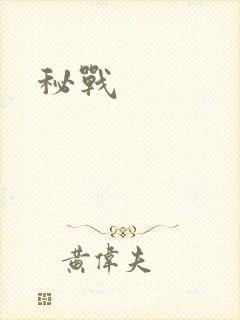 秘戰
黃偉夫